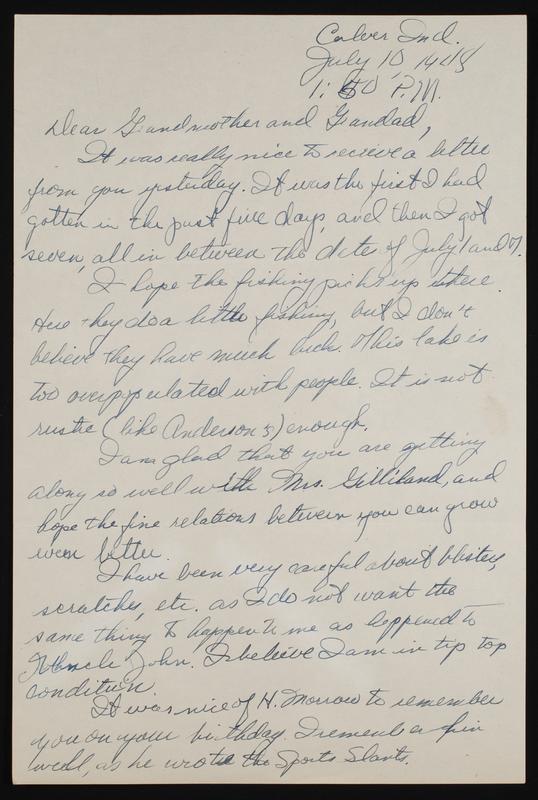 Culver Ind.
July 10, 1948
1:50 P.M.
Dear Grandmother and Grandad,
It was really nice to receive a letter
from you yesterday. It was the first I had
gotten in the past five days, and then I got
seven, all in between the dates of July 1 and 7.
I hope the fishing picks up there.
Here they do a little fishing, but I don't
believe they have much luck. This lake is
too overpopulated with people. It is not
rustic (like Anderson's) enough.
I am glad that you are getting
along so well with Mrs. Gilliland, and
hope the fine relations between you can grow
even better.
I have been very careful about blisters,
scratches, etc. as I do not want the
same thing to happen to me as happened to
Uncle John. I believe I am in tip top
condition.
It was nice of H. Morrow to remember
you on your birthday. I remember him
well, as he wrote the Sports Slants.